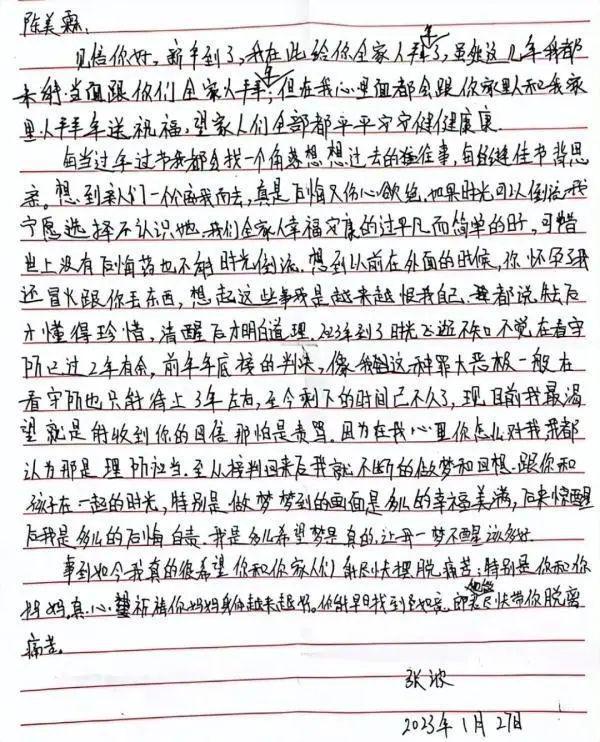 陈美霖:
见信你好,新年到了,我在此给你全家人拜年了,虽然这几年我都
未能当面跟你们全家人拜年,但在我心里面都会跟你家里人和我家
里人拜年送祝福,望家人们全部都平平安安健健康康.
每当过年过节我都会找一个角落想想过去的往事,每逢佳节倍思
亲.想到亲人们一个个离我而去,真是后悔又伤心欲绝,如果时光可以倒流我
宁愿选择不认识她.我们全家人幸福安康的过平凡而简单的日子,可惜
世上没有后悔药也不能时光倒流.想到以前在外面的时候,你怀孕了我
还冒火跟你丢东西,想起这些事我是越来越恨我自己,我都说失去后
才懂得珍惜,清醒后才明白道理.2023年到了时光飞逝不知不觉在看守
所已过2年有余,前年年底接的判决,像我们这种罪大恶极一般在
看守所也只能待上3年左右,至今剩下的时间已不久了,现目前我最渴
望就是能收到你的回信那怕是责骂.因为在我心里你怎么对我我都
认为那是理所应当.至从接判回来后我就不断的做梦和回想.跟你和
孩子在一起的时光,特别是做梦梦到的画面是多么的幸福美满,后来惊醒
后我是多么的后悔自责.我是多么希望梦是真的,让我一梦不醒该多好.
事到如今我真的很希望你和你家人们能尽快摆脱痛苦:特别是你和你
妈妈.真心祈祷你妈妈身体越来越好.你能早日找到如意 尽快带你脱离
痛苦.
张波
2023年1月27日